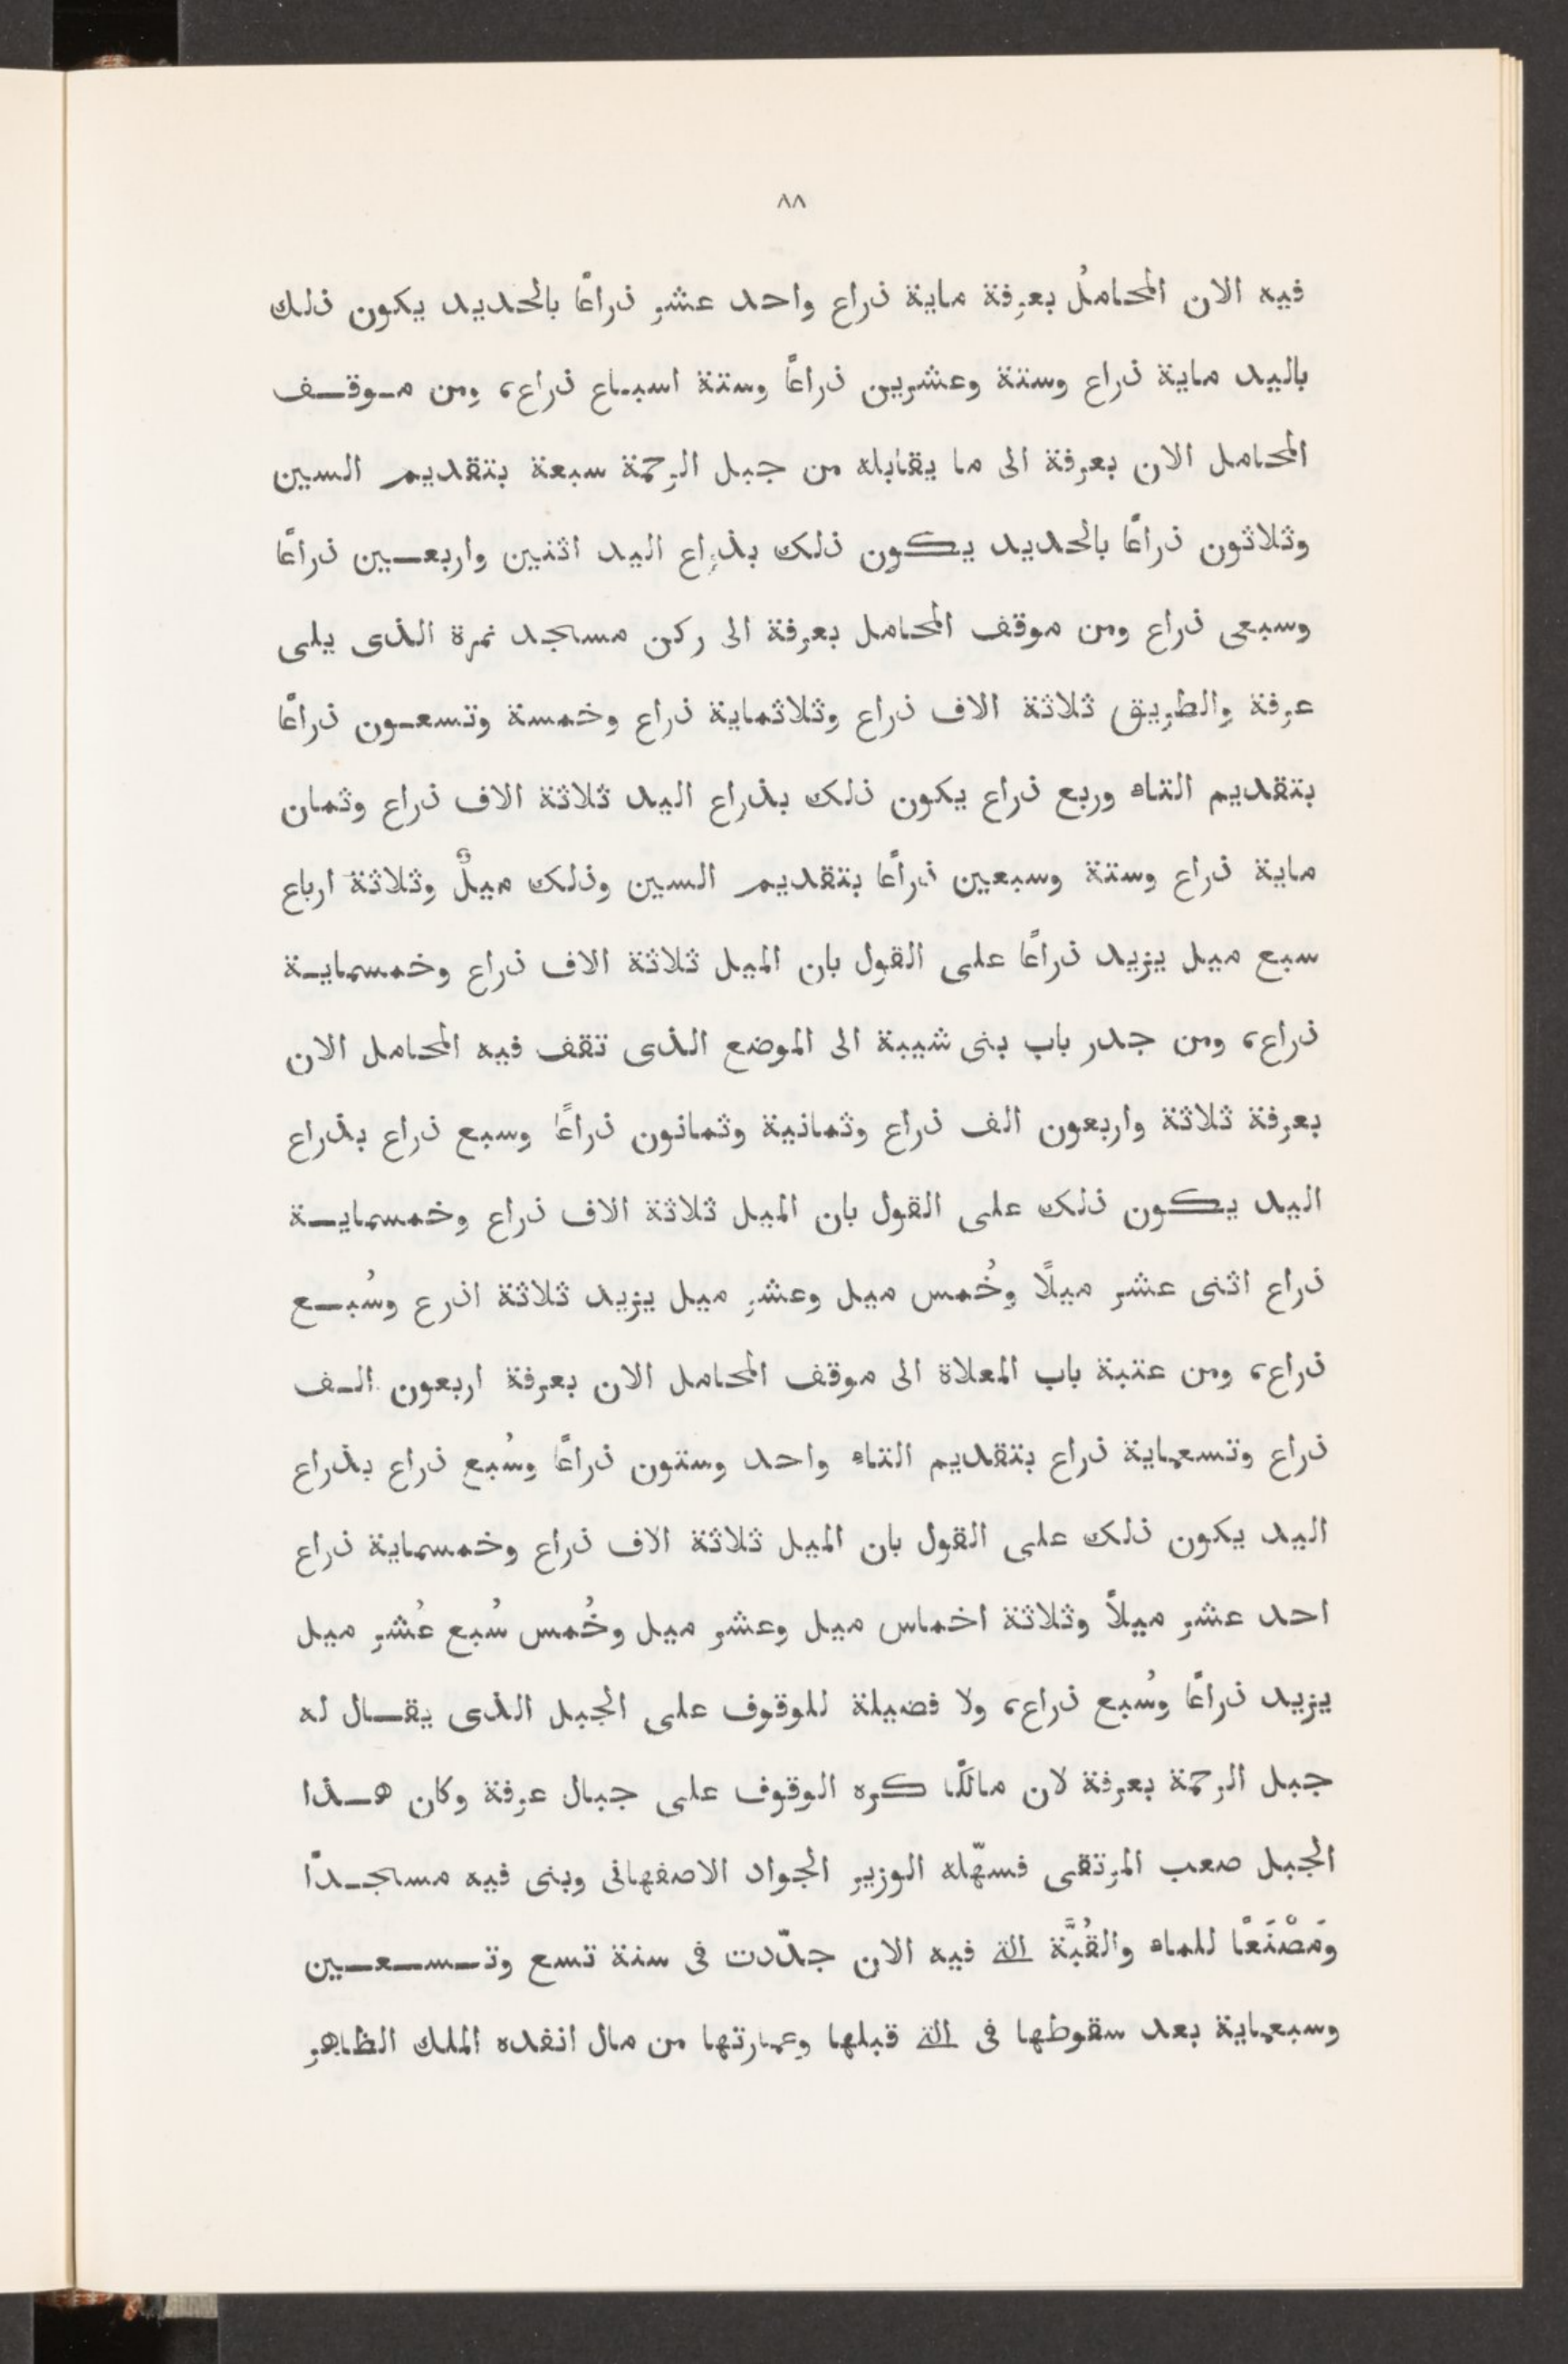 ٨٨
فيه الان المحاملُ بعرفة ماية ذراع واحد عشر ذراعًا بالحديد يكون ذلك
باليد ماية ذراع وستة وعشرين ذراعاً وستة اسباع ذراع، ومن موقف
المحامل الان بعرفة الى ما يقابله من جبل الرحمة سبعة بتقديم السين
وثلاثون ذراعًا بالحديد يكون ذلك بذراع اليد اثنين واربعين ذراعًا
وسبعى ذراع ومن موقف المحامل بعرفة الى ركن مسجد نمرة الذى يلى
عرفة والطريق ثلاثة الاف ذراع وثلاثماية ذراع وخمسة وتسعون ذراعًا
بتقديم التاء وربع ذراع يكون ذلك بذراع اليد ثلاثة الاف ذراع وثمان
ماية ذراع وستة وسبعين ذراعًا بتقديم السين وذلك ميلٌ وثلاثة ارباع
سبع ميل يزيد ذراعًا على القول بان الميل ثلاثة الاف ذراع وخمسماية
ذراع، ومن جدر باب بنى شيبة الى الموضع الذى تقف فيه المحامل الان
بعرفة ثلاثة واربعون الف ذراع وثمانية وثمانون ذراعًا وسبع ذراع بذراع
اليد يكون ذلك على القول بان الميل ثلاثة الاف ذراع وخمسماية
ذراع اثنى عشر ميلًا وخُمس ميل وعشر ميل يزيد ثلاثة اذرع وسُبع
ذراع، ومن عتبة باب المعلاة الى موقف المحامل الان بعرفة اربعون الف
ذراع وتسعماية ذراع بتقديم التاء واحد وستون ذراعًا وسُبع ذراع بذراع
اليد يكون ذلك على القول بان الميل ثلاثة الاف ذراع وخمسماية ذراع
احد عشر ميلاً وثلاثة اخماس ميل وعشر ميل وخُمس سُبع عُشر ميل
يزيد ذراعًا وسُبع ذراع، ولا فضيلة للوقوف على الجبل الذى يقال له
جبل الرحمة بعرفة لان مالكًا كره الوقوف على جبال عرفة وكان هذا
الجبل صعب المرتقى فسهّله الوزير الجواد الاصفهانى وبنى فيه مسجدًا
ومَصْنَعًا للماء والقُبَّة الة فيه الان جدّدت فى سنة تسع وتسعين
وسبعماية بعد سقوطها فى الة قبلها وعمارتها من مال انفده الملك الظاهر